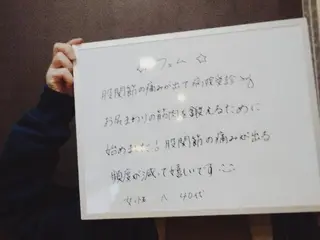 股関節の痛みが出て病院受診
お尻まわりの筋肉を鍛えるために
始めました！股関節の痛みが出る
頻度が減って嬉しいです
40代